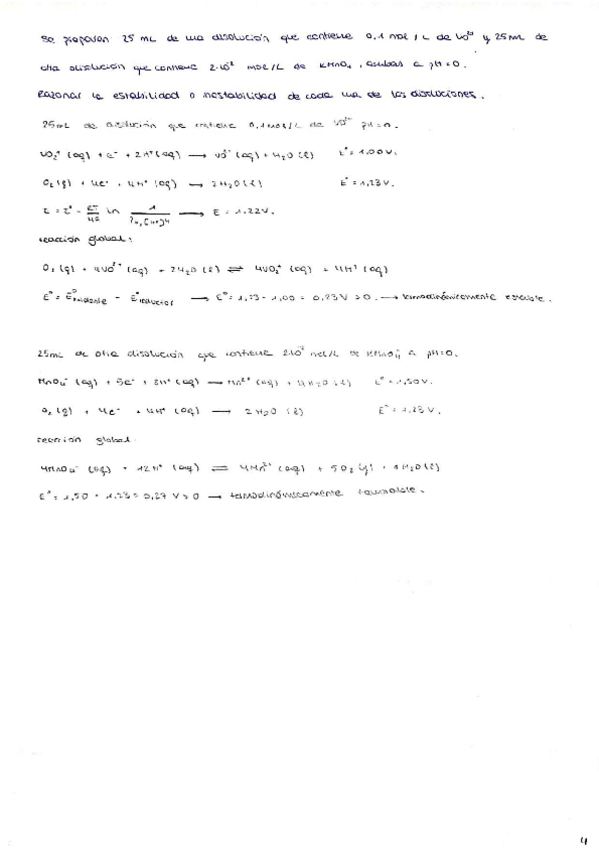 Se preparan 25 mL de una disolución que contiene 0,1 mol/L de VO²⁺ y 25 mL de
otra disolución que contiene 2·10⁻² mol/L de KMnO₄, ambas a pH=0.
Razonar la estabilidad o inestabilidad de cada una de las disoluciones.
25mL de disolución que contiene 0,1 mol/L de VO²⁺ pH=0.
VO₂⁺ (aq) + e⁻ + 2H⁺ (aq) → VO²⁺ (aq) + H₂O (l) E° = 1,00V.
O₂ (g) + 4e⁻ + 4H⁺ (aq) → 2H₂O (l) E° = 1,23V.
E = E° - RT/4F ln 1/ → E = 1,22V.
reacción global:
O₂ (g) + 4VO²⁺ (aq) + 2H₂O (l) ⇌ 4VO₂⁺ (aq) + 4H⁺ (aq)
E° = E°oxidante - E°reductor → E° = 1,23 - 1,00 = 0,23V > 0. → termodinámicamente
25mL de otra disolución que contiene 2·10⁻² mol/L de KMnO₄ a pH=0.
MnO₄⁻ (aq) + 5e⁻ + 8H⁺ (aq) → Mn²⁺ (aq) + 4H₂O (l) E° = 1,50V.
O₂ (g) + 4e⁻ + 4H⁺ (aq) → 2H₂O (l) E° = 1,23V.
reacción global:
4MnO₄⁻ (aq) + 12H⁺ (aq) ⇌ 4Mn²⁺ (aq) + 5O₂ (g) + H₂O (l)
E° = 1,50 - 1,23 = 0,27 V > 0 → termodinámicamente favorable.
4